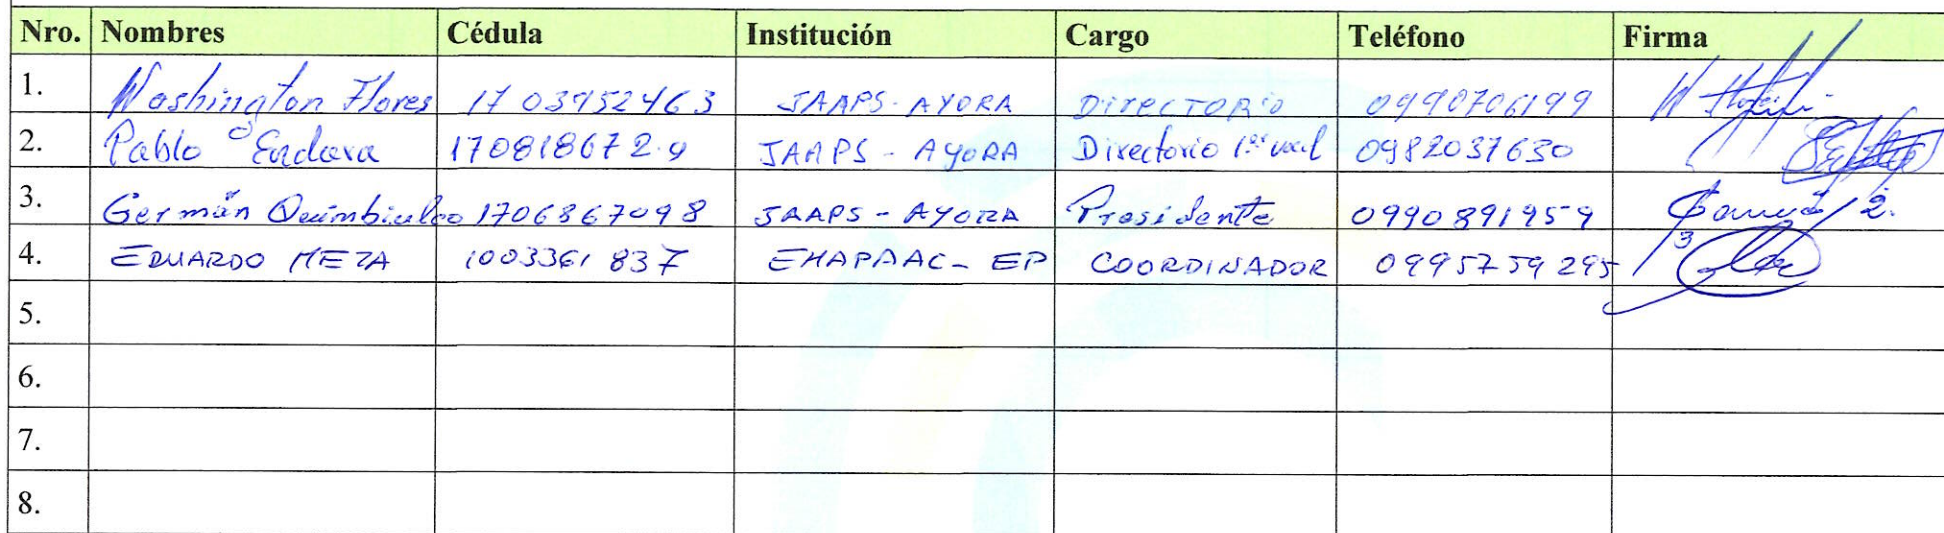 Nro. Nombres Cédula Institución Cargo Teléfono Firma
1. Washington Flores 1703752463 JAAPS-AYORA DIRECTORIO 0990706199
2. Pablo Endara 170818672-9 JAAPS - AYORA Directorio 1er vocal 0982037630
3. Germán Quimbiulco 1706867098 JAAPS - AYORA Presidente 0990891959
4. EDUARDO MEZA 1003361837 EMAPAAC-EP COORDINADOR 0995759295
5.
6.
7.
8.